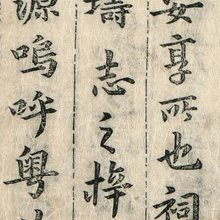 妥享所也祠
壽志之梓
源嗚呼粵